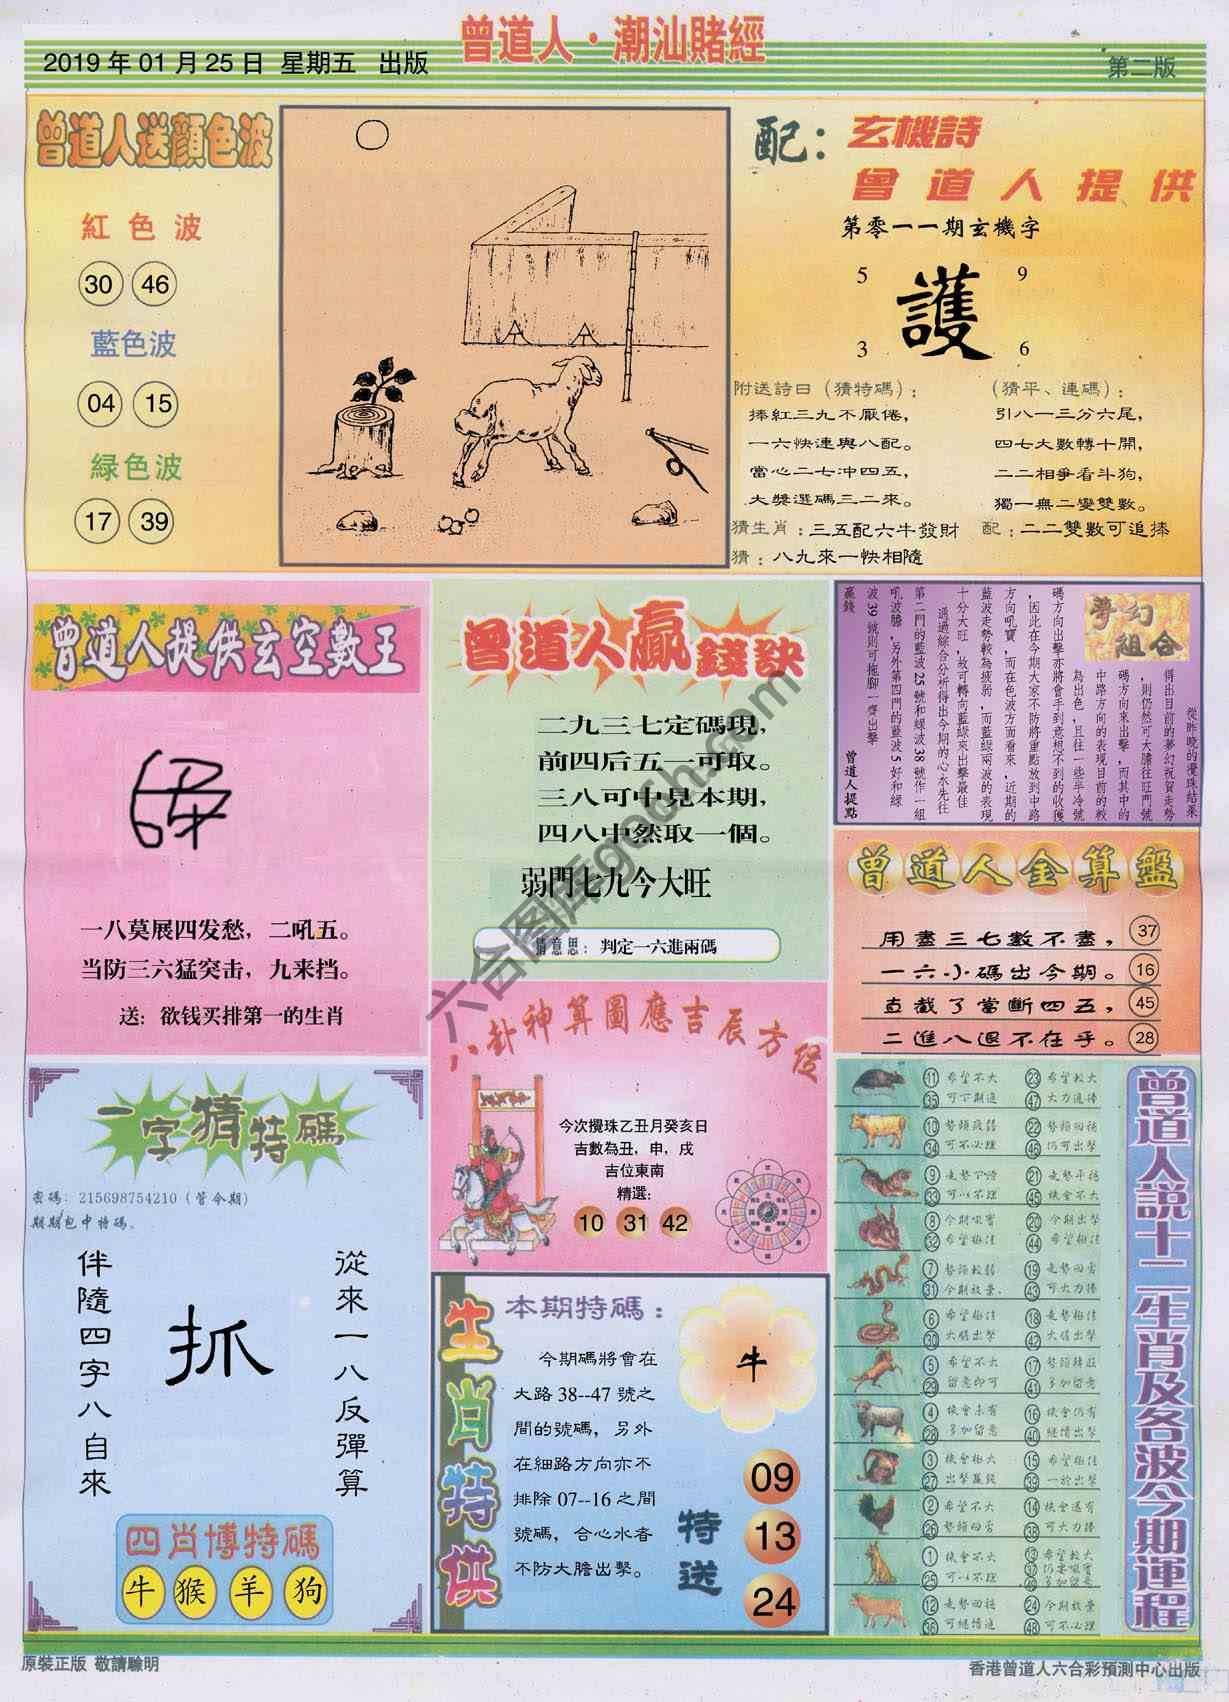 曾道人·潮汕賭經
2019年01月25日 星期五 出版
第二版
曾道人送顏色波
紅色波
30 46
藍色波
04 15
緑色波
17 39
配：玄機詩
曾道人提供
第零一一期玄機字
5 9
護
3 6
附送詩曰（猜特碼）：
捧紅三九不厭倦，
一六快連與八配。
當心二七冲四五，
大獎選碼三二來。
（猜平、連碼）：
引八一三分六尾，
四七大數轉十開，
二二相爭看斗狗，
獨一無二變雙數。
猜生肖：三五配六牛發財
配：二二雙數可追捧
猜：八九來一快相隨
曾道人提供玄空數王
一八莫展四发愁，二吼五。
当防三六猛突击，九来挡。
送：欲钱买排第一的生肖
曾道人贏錢訣
二九三七定碼現，
前四后五一可取。
三八可中見本期，
四八中然取一個。
弱門七九今大旺
猜意思：判定一六進兩碼
夢幻組合
從昨晚的攪珠結果
得出目前的夢幻祝賀走勢
，則仍然可大膽往旺門號
碼方向來出擊，而其中的
中路方向的表現目前的較
為出色，且往一些半冷號
碼方向出擊亦將會手到意想不到的收獲
，因此在今期大家不防將重點放到中路
方向吼寶，而在色波方面看來，近期的
藍波走勢較為疲弱，而藍緑兩波的表現
十分大旺，故可轉向藍緑來出擊最佳
通過綜合分析得出今期的心水先往
第二門的藍波25號和緑波38號作一組
吼波膽，另外第四門的藍波5好和緑
波39號則可拖腳一齊出擊
贏錢
曾道人提點
曾道人金算盤
用盡三七數不盡，37
一六小碼出今期。16
直截了當斷四五，45
二進八退不在乎。28
八卦神算圖應吉辰方位
今次攪珠乙丑月癸亥日
吉數為丑，申，戌
吉位東南
精選：
10 31 42
一字猜特碼
密碼：215698754210（管今期）
期期包中特碼。
從來一八反彈算
抓
伴隨四字八自來
四肖博特碼
牛 猴 羊 狗
生肖特供
本期特碼：
今期碼將會在
大路38--47號之
間的號碼，另外
在細路方向亦不
排除07--16之間
號碼，合心水者
不防大膽出擊。
牛
特送
09
13
24
曾道人說十二生肖及各波今期運程
11 希望不大 23 希望較大
35 可下期追 47 大力追捧
10 勢頭疲弱 22 勢頭回穩
34 可不必理 46 仍可出擊
9 走勢下滑 21 走勢平穩
33 可以不理 45 機會不大
8 今期吼寶 20 今期出擊
32 希望極佳 44 希望極佳
7 勢頭較弱 19 走勢回勇
31 今期放棄 43 可大力捧
6 希望極佳 18 走勢極佳
30 大膽出擊 42 大膽出擊
5 希望不大 17 勢頭轉旺
29 留意即可 41 多加留意
4 機會未有 16 機會仍有
28 多加留意 40 繼續出擊
3 機會極大 15 希望極佳
27 出擊贏錢 39 一於出擊
2 希望不大 14 機會還有
26 勢頭回勇 38 可大力捧
1 機會不大 13 希望較大
25 可以不理 37 仍要吼實
49 多加留意
12 走勢回穩 24 今期放棄
36 可繼續追 48 可不必理
六合图库goch.com
原裝正版 敬請驗明
香港曾道人六合彩預測中心出版